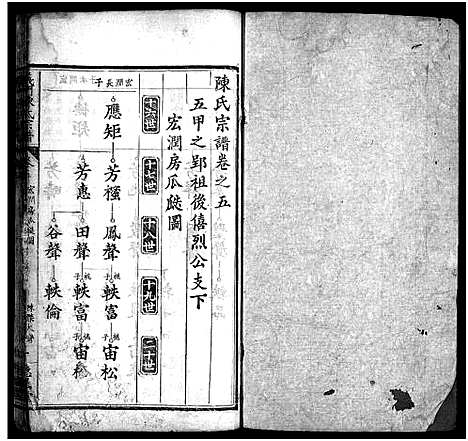 陳氏宗譜卷之五
五甲之郢祖後僖烈公支下
宏潤房瓜瓞圖
十六世
十七世
十八世
十九世
二十世
宏潤長子
應矩
芳襁 鳳聲 軼富 宙松
芳惠 田聲 祧子 軼富 祧子 宙松
谷聲 軼倫